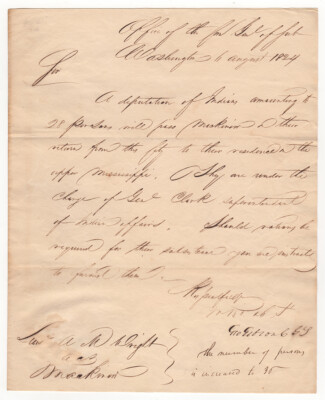 Office of the Genl of Sub
Washington 6 August 1824
Sir
A deputation of Indians amounting to
28 persons will pass Mackinac on their
return from this City to their residence on the
upper Mississippi. They are under the
charge of Genl Clark superintendent
of Indian affairs. Should rations be
required for their subsistence you are instructed
to furnish them
Respectfully
Yr Ob St
Geo Gibson C G S
Lieut A M Wright
A C S
Mackinac
the number of persons
is increased to 35